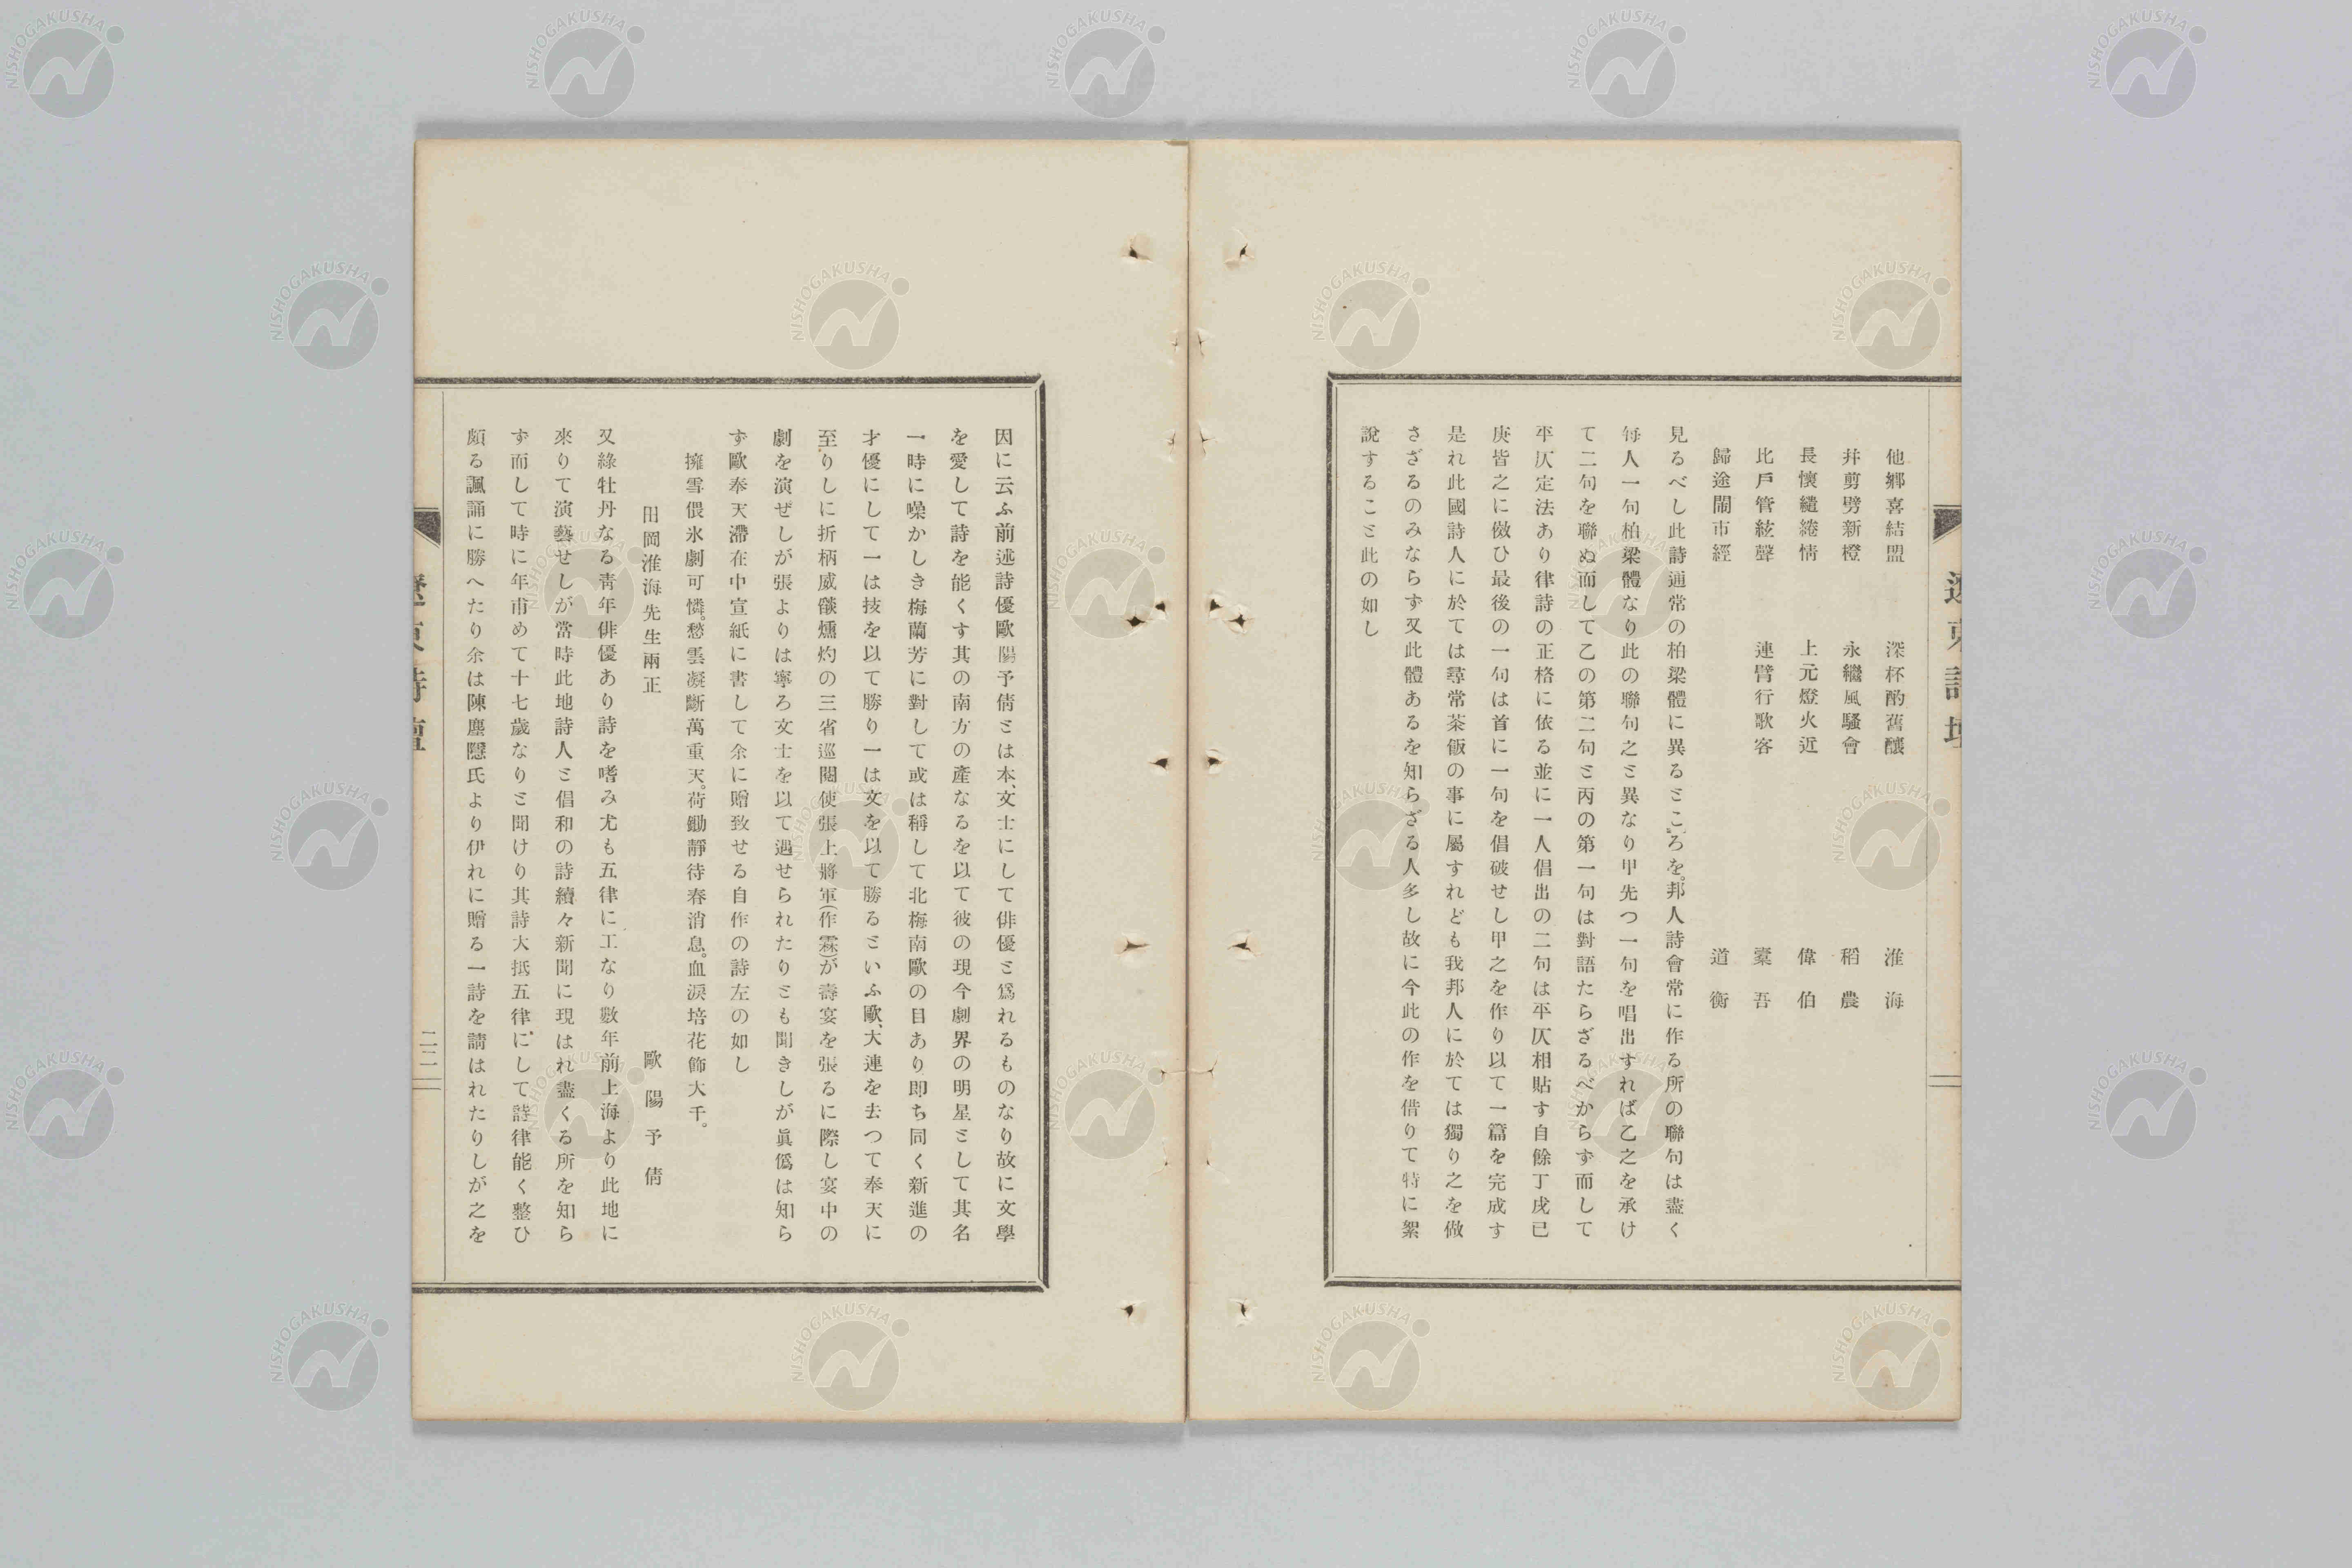 他鄕喜結盟　深杯酌舊釀　淮海
幷剪劈新橙　永繼風騷會　稻農
長懷繾綣情　上元燈火近　偉伯
比戶管絃聲　連臂行歌客　槖吾
歸途鬧市經　道衡
見るべし此詩通常の柏梁體に異るところを。邦人詩會常に作る所の聯句は盡く
每人一句柏梁體なり此の聯句之と異なり甲先つ一句を唱出すれば乙之を承け
て二句を聯ぬ而して乙の第二句と丙の第一句は對語たらざるべからず而して
平仄定法あり律詩の正格に依る並に一人倡出の二句は平仄相貼す自餘丁戊己
庚皆之に倣ひ最後の一句は首に一句を倡破せし甲之を作り以て一篇を完成す
是れ此國詩人に於ては尋常茶飯の事に屬すれども我邦人に於ては獨り之を做
さざるのみならず又此體あるを知らざる人多し故に今此の作を借りて特に絮
說すること此の如し
因に云ふ前述詩優歐陽予倩とは本、文士にして俳優と爲れるものなり故に文學
を愛して詩を能くす其の南方の產なるを以て彼の現今劇界の明星として其名
一時に噪かしき梅蘭芳に對して或は稱して北梅南歐の目あり卽ち同く新進の
才優にして一は技を以て勝り一は文を以て勝るといふ歐、大連を去つて奉天に
至りしに折柄威燄燻灼の三省巡閱使張上將軍(作霖)が壽宴を張るに際し宴中の
劇を演ぜしが張よりは寧ろ文士を以て遇せられたりとも聞きしが眞僞は知ら
ず歐奉天滯在中宣紙に書して余に贈致せる自作の詩左の如し
擁雪偎氷劇可憐。愁雲凝斷萬重天。荷鋤靜待春消息。血淚培花飾大千。
田岡淮海先生兩正　歐陽予倩
又綠牡丹なる靑年俳優あり詩を嗜み尤も五律に工なり數年前上海より此地に
來りて演藝せしが當時此地詩人と倡和の詩續々新聞に現はれ盡くる所を知ら
ず而して時に年甫めて十七歲なりと聞けり其詩大抵五律にして詩律能く整ひ
頗る諷誦に勝へたり余は陳塵隱氏より伊れに贈る一詩を請はれたりしが之を
遼東詩壇
二二
NISHOGAKUSHA